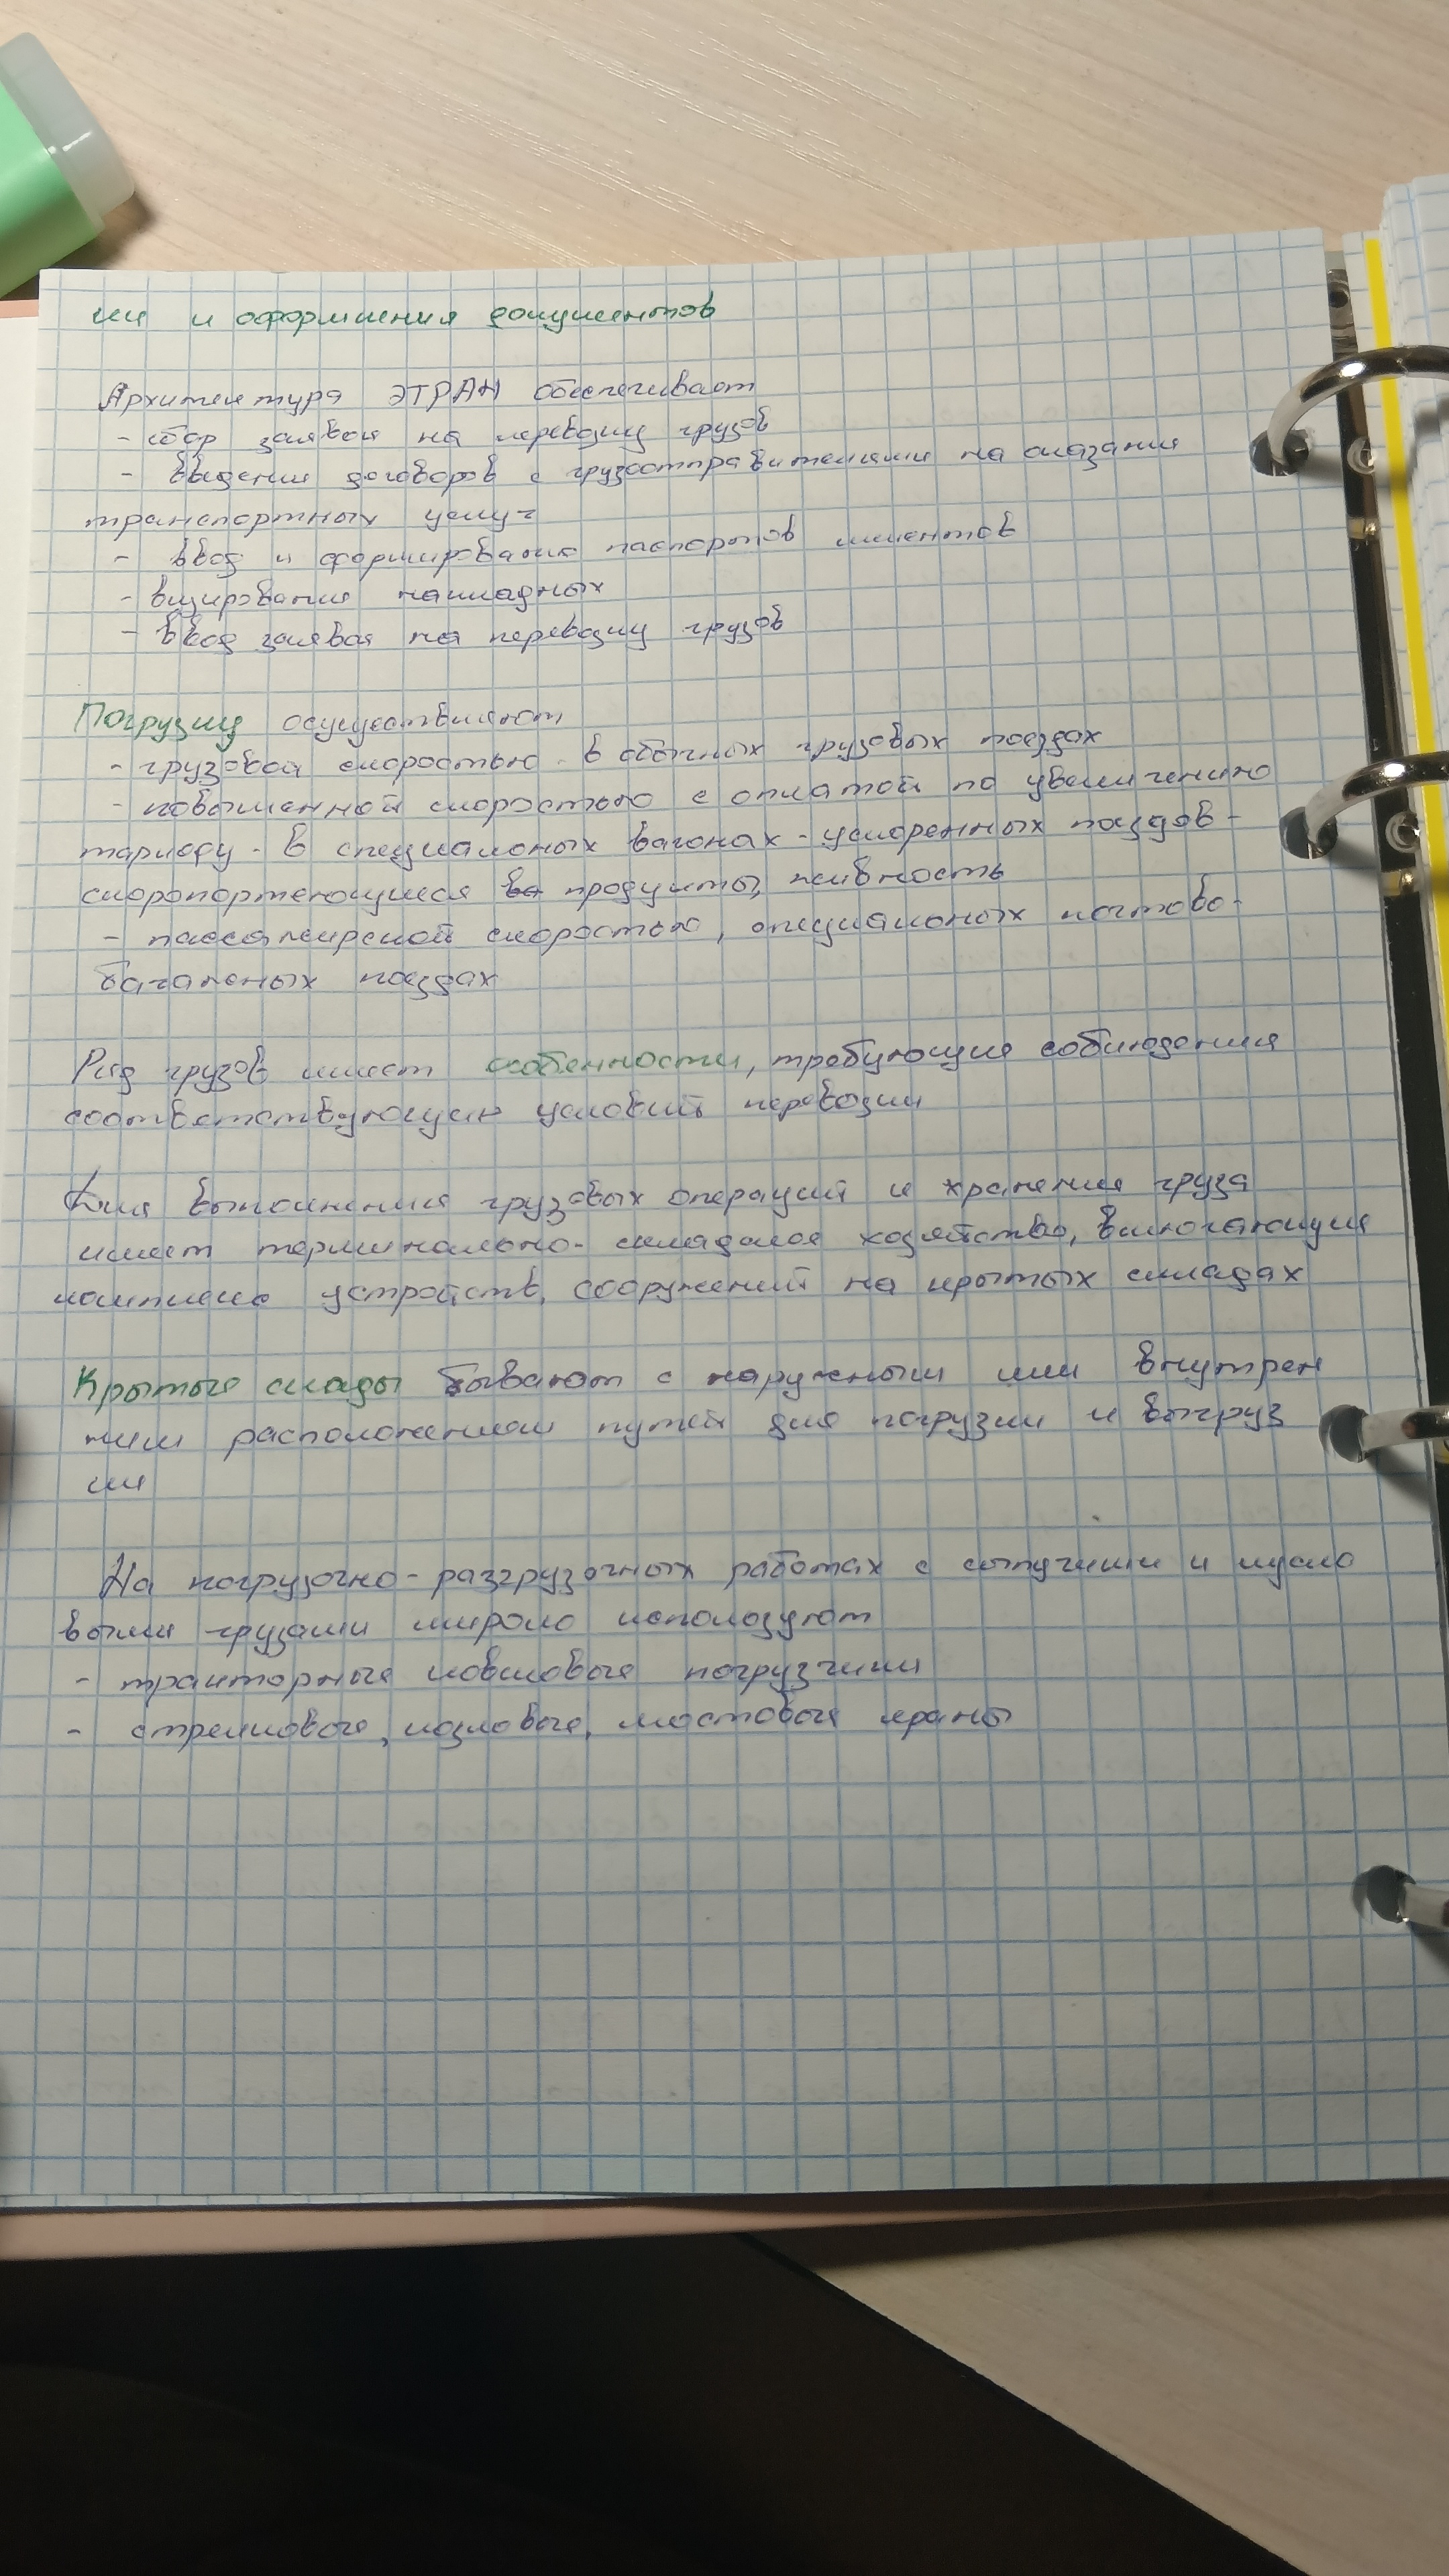 ки и оформления документов
Архитектура ЭТРАН обеспечивает
- сбор заявок на перевозку грузов
- введение договоров с грузоотправителями на оказания
транспортных услуг
- ввод и формирование паспортов клиентов
- визирование накладных
- ввод заявок на перевозку грузов
Погрузку осуществляют
- грузовой скоростью - в обычных грузовых поездах
- повышенной скоростью с оплатой по увеличению
тарифу - в специальных вагонах - ускоренных поездов -
скоропортеющиеся продукты, живность
- пассажирской скоростью, специальных почтово-
багажных поездах
Ряд грузов имеет особенности, требующие соблюдения
соответствующих условий перевозки
Для выполнения грузовых операций и хранения груза
имеет терминально-складское хозяйство, включающие
комплекс устройств, сооружений на крытых складах
Крытые склады бывают с наружным или внутрен
ним расположением путей для погрузки и выгруз
ки
На погрузочно-разгрузочных работах с сыпучими и куско
выми грузами широко используют
- тракторные ковшовые погрузчики
- стреловые, козловые, мостовые краны